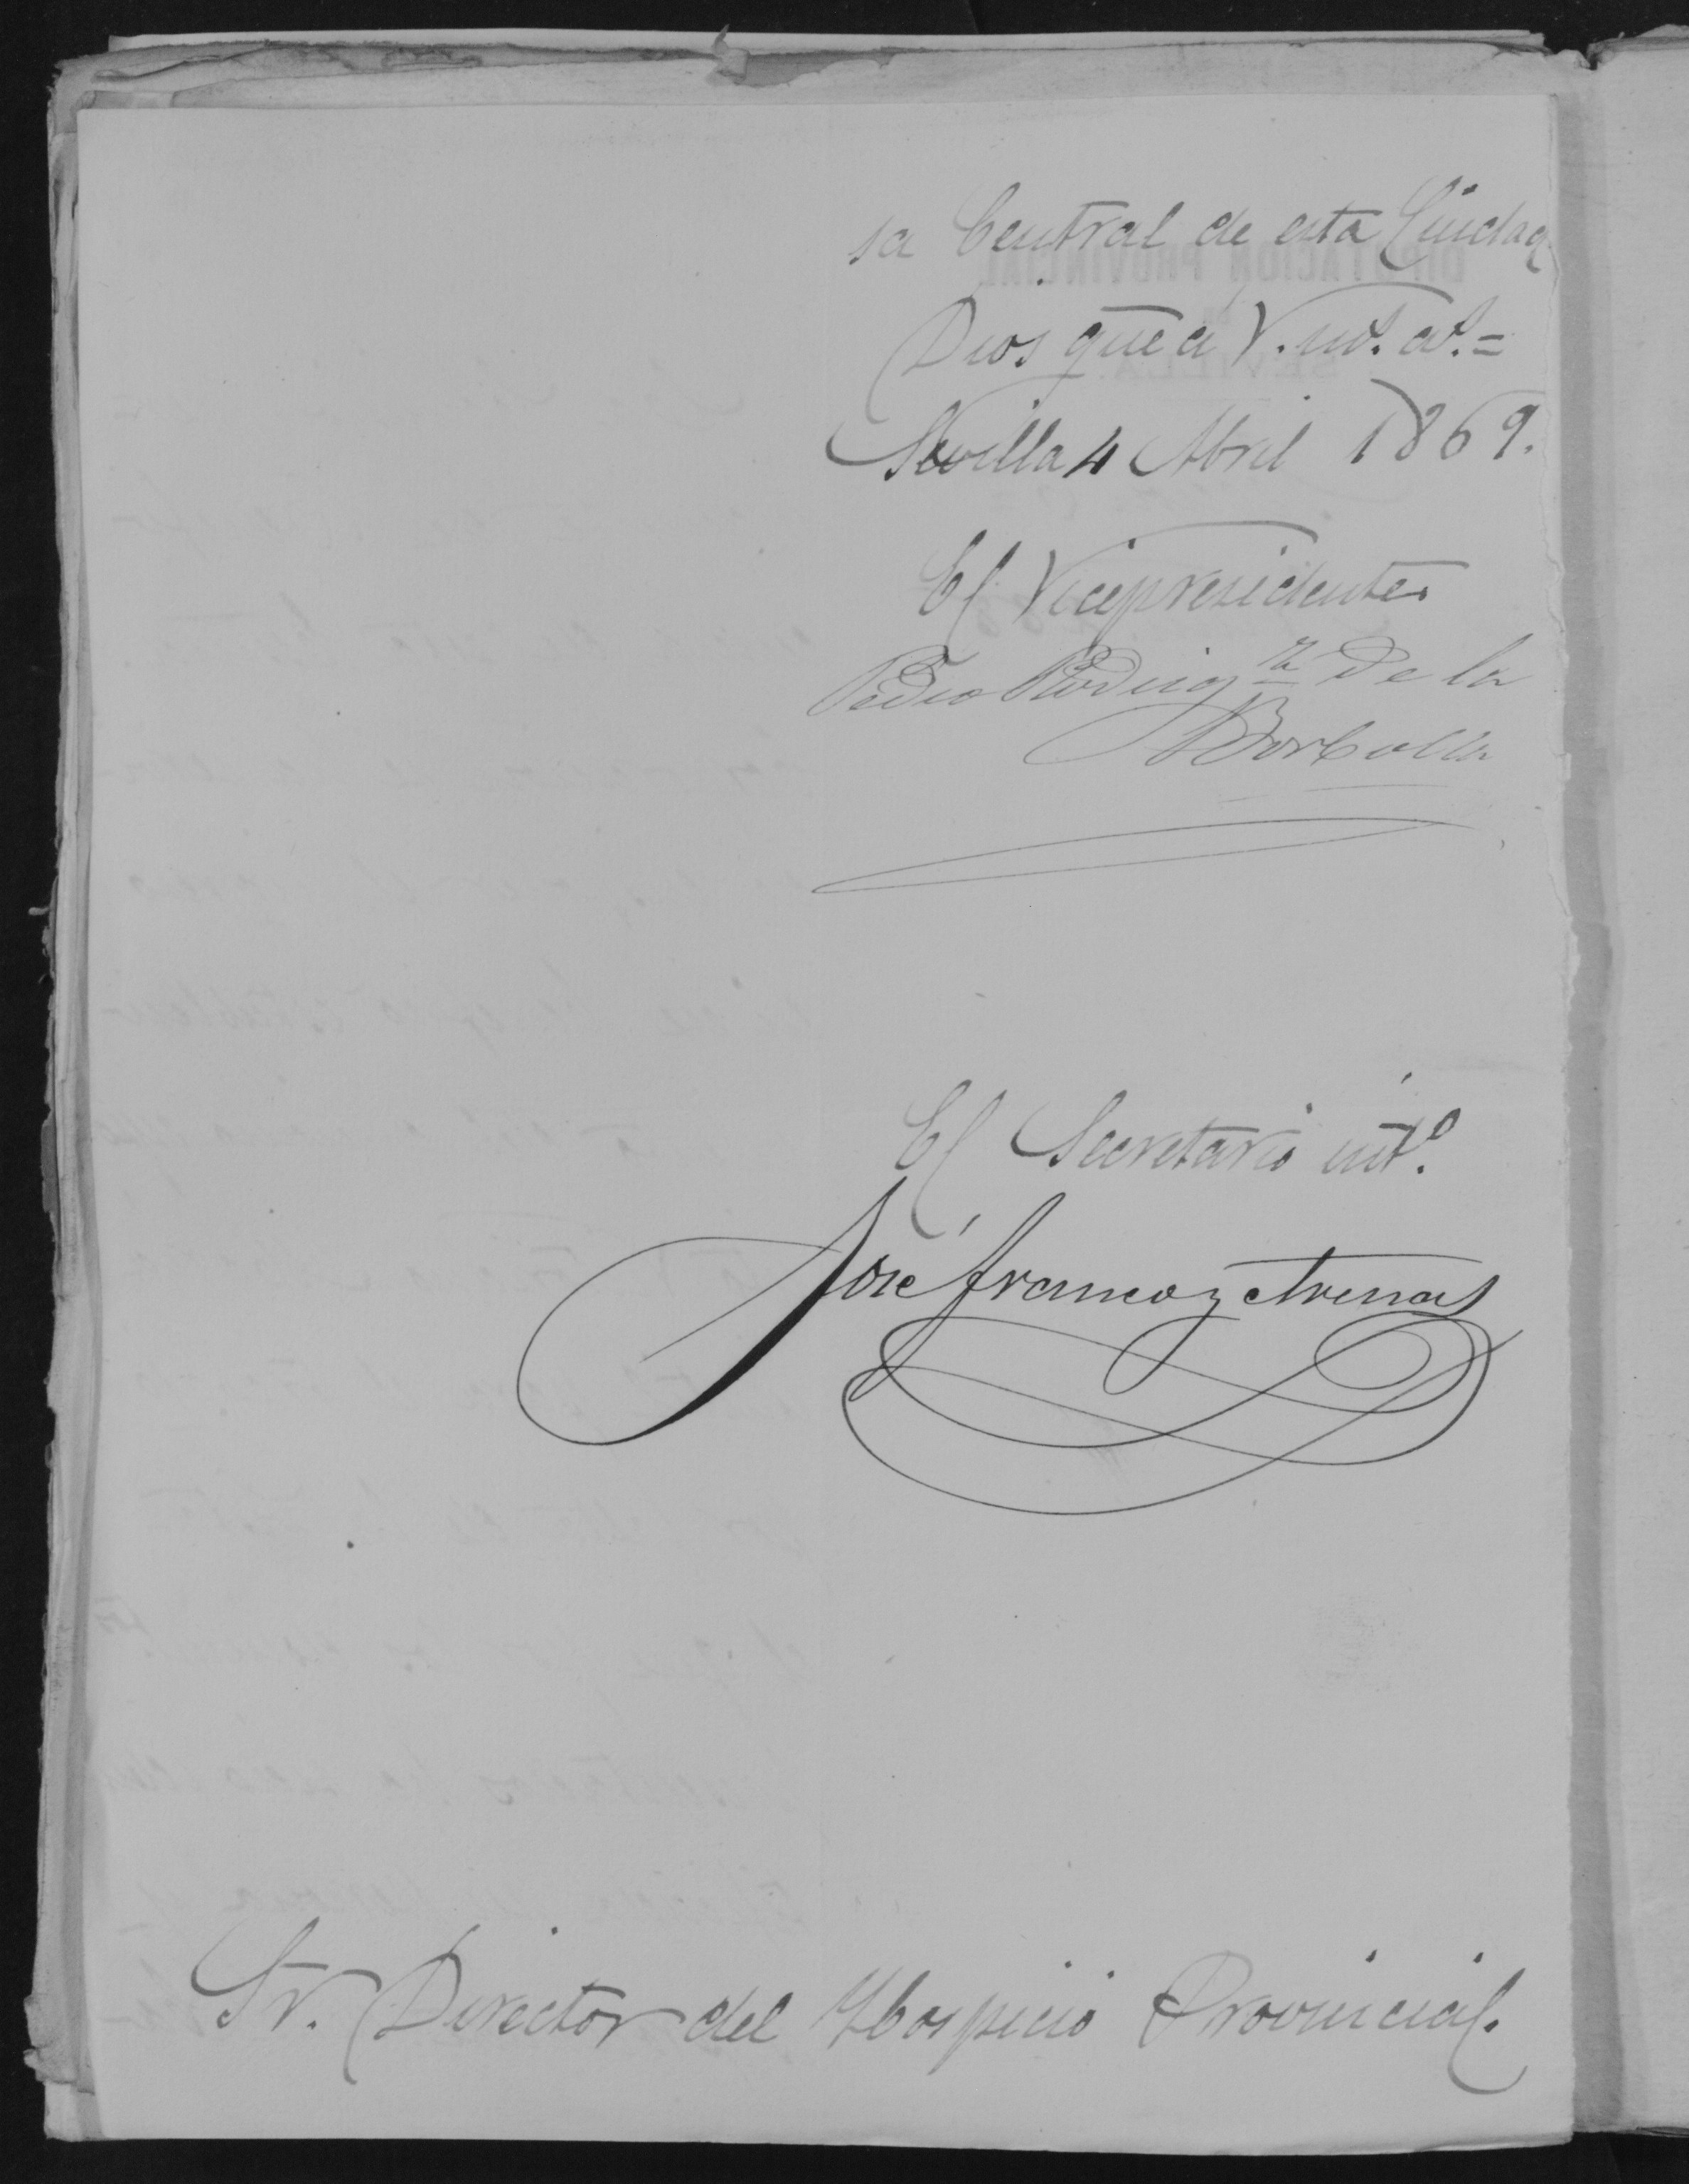 sa Central de esta Ciudad
Dios gue a V. ms. as. =
Sevilla 4 Abril 1869.
El Vicepresidente
Pedro Rodrigz de la
Borbolla
El Secretario into.
José Franco y Arenas
Sr. Director del Hospicio Provincial.